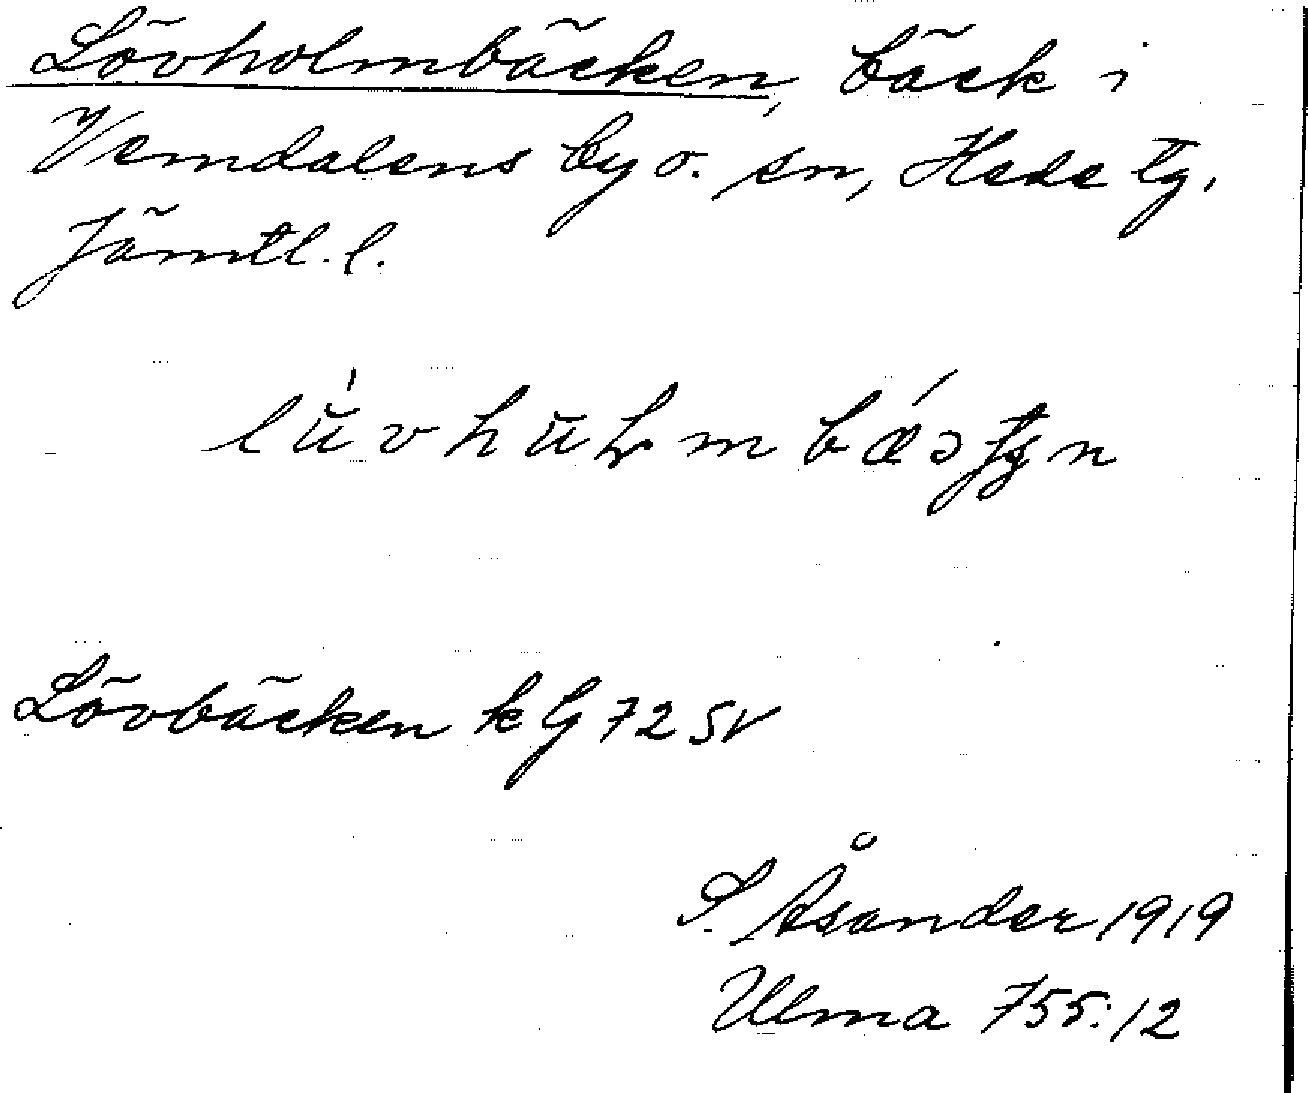 Lövholmbäcken, bäck i
Vemdalens by o. sn, Hede tg,
Jämtl. l.
Lövbäcken k G 72 SV
S. Åsander 1919
Ulma 755:12